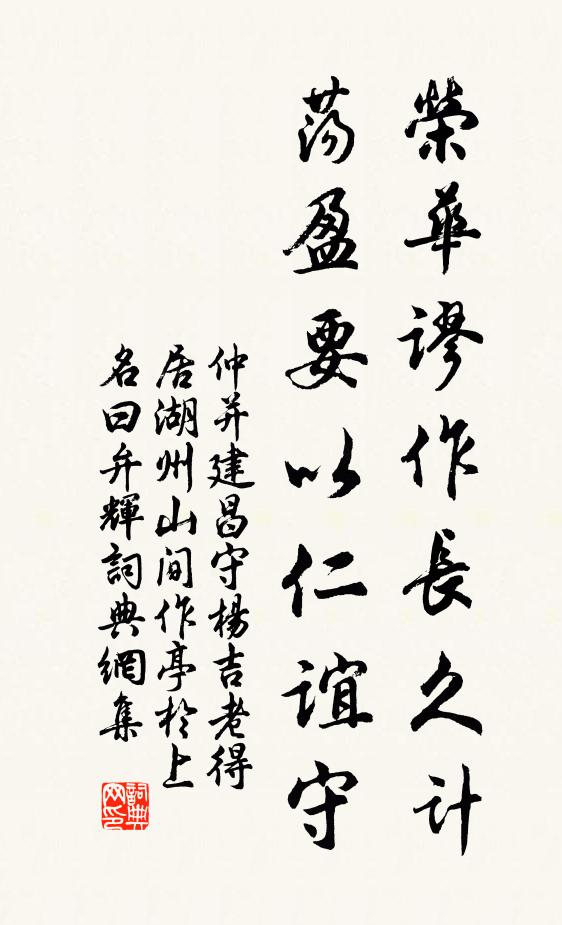 榮華謬作長久計
蕩盈要以仁誼守
仲并建昌守楊吉老得
居湖州山间作亭於上
名曰弁輝詞典網集
詞典网印